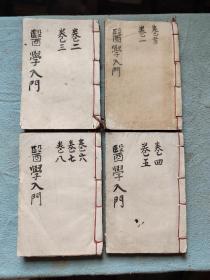 卷二
卷三
醫學入門
卷首
卷一
醫學入門
卷六
卷七
卷八
醫學入門
卷四
卷五
醫學入門